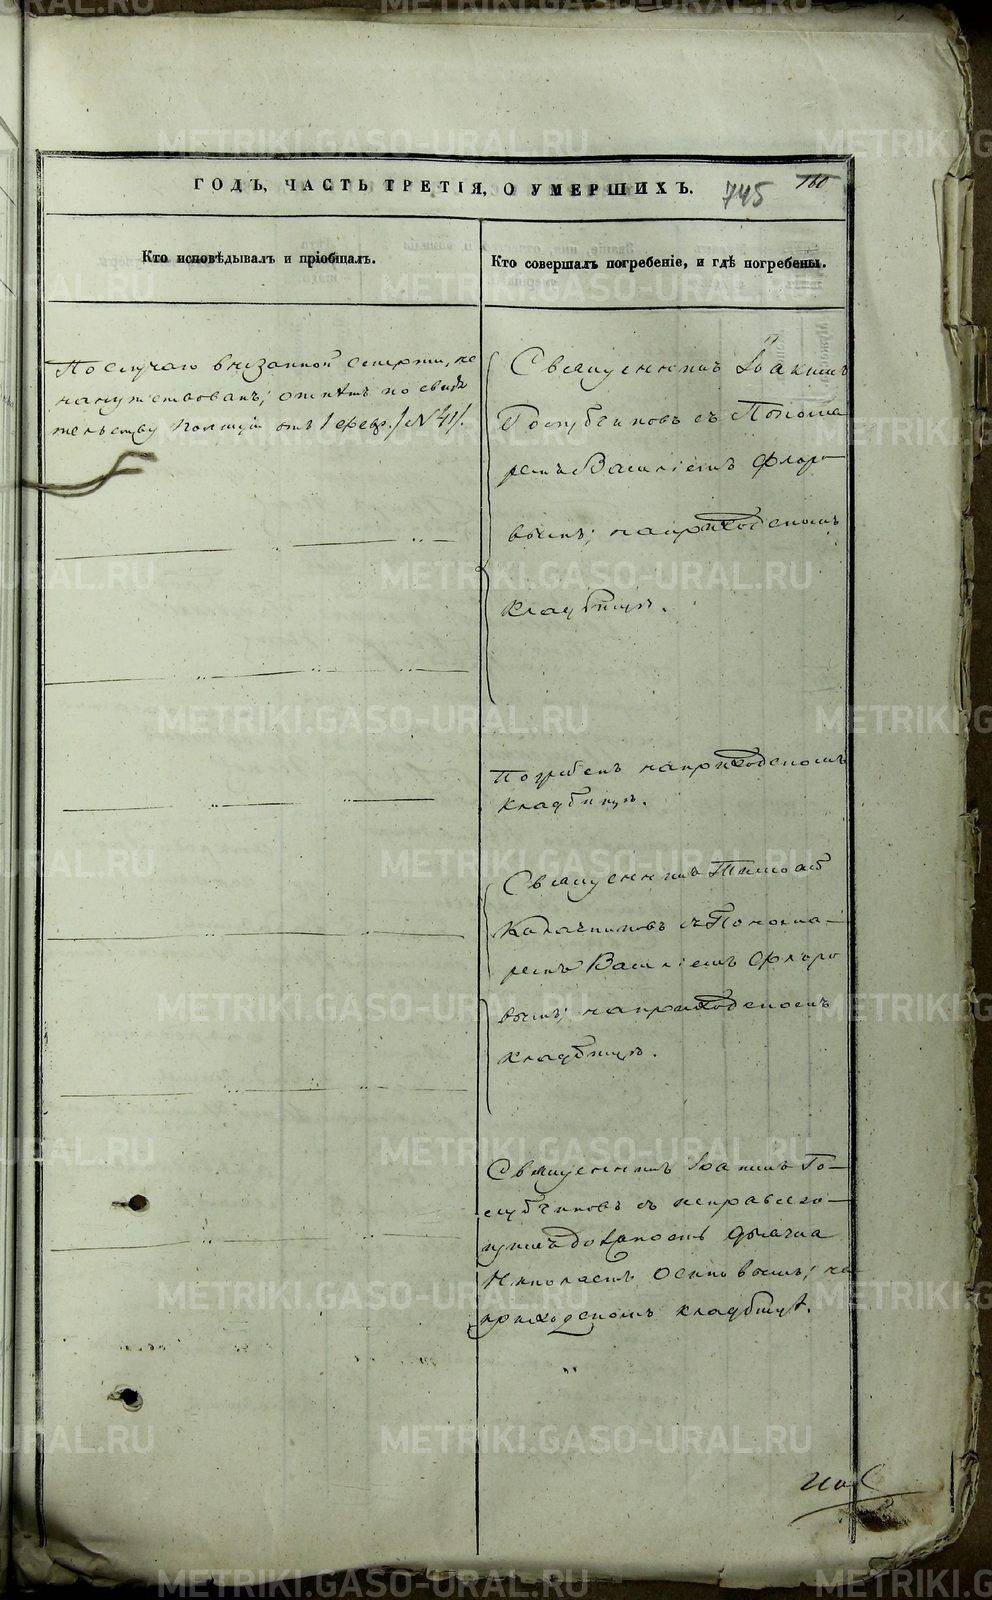 ГОДЪ, ЧАСТЬ ТРЕТІЯ, О УМЕРШИХЪ.
745
160
Кто исповѣдывалъ и пріобщалъ.
Кто совершалъ погребеніе, и гдѣ погребены.
По случаю внезапной смерти, не
напутствованъ; отпѣтъ по свидѣ
тельству Полиціи отъ 1 февр. /№ 41/.
Священникъ Іоакимъ
Голубчиковъ съ Понома
ремъ Василіемъ Флоро
вымъ; на приходскомъ
кладбищѣ.
Погребенъ на приходскомъ
кладбищѣ.
Священникъ
Калачниковъ съ Понома-
ремъ Василіемъ Флоро
вымъ; на приходскомъ
кладбищѣ.
Священникъ Іоакимъ Го-
лубчиковъ съ исправляю-
щимъ должность дьячка
Николаемъ Осиповымъ; на
приходскомъ кладбищѣ.
METRIKI.GASO-URAL.RU